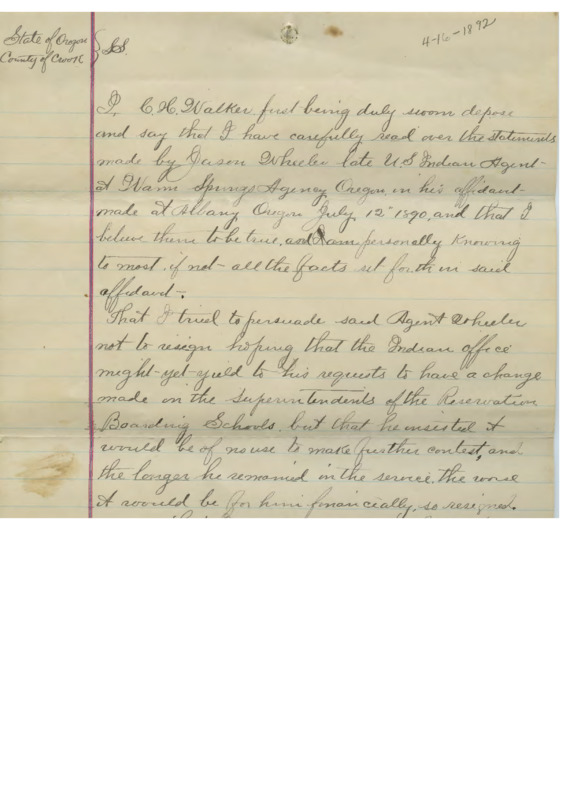 4-16-1892
State of Oregon
County of Crook } SS.
I, C.H. Walker, first being duly sworn depose
and say that I have carefully read over the statements
made by Jason Wheeler late U.S. Indian Agent
at Warm Springs Agency Oregon, in his affidavit
made at Albany Oregon July 12" 1890, and that I
believe them to be true, and I am personally Knowing
to most, if not all the facts set forth in said
affidavit.
That I tried to persuade said Agent Wheeler
not to resign hoping that the Indian office
might yet yield to his requests to have a change
made in the Superintendents of the Reservation
Boarding Schools, but that he insisted it
would be of no use to make further contest, and
the longer he remained in the service, the worse
it would be for him financially, so resigned.